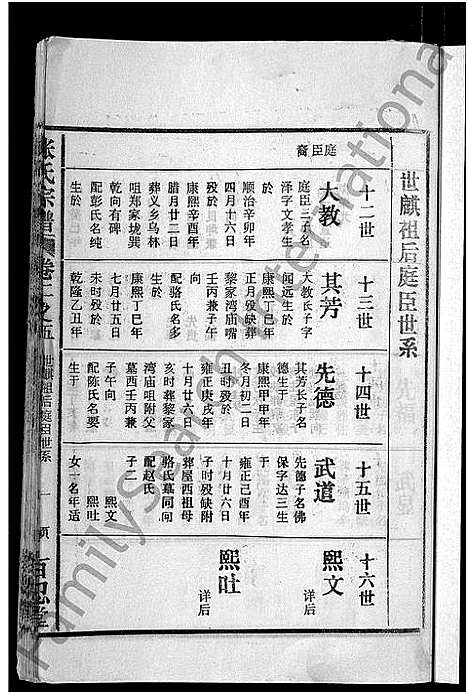 世麒祖后庭臣世系
十二世
十三世
十四世
十五世
十六世
庭臣裔
大教
庭臣三子名
泽字文孝生
於
顺治辛卯年
四月十六日
殁於
康熙辛酉年
腊月廿二日
葬义乡乌林
咀郑家垅巽
乾向有碑
配彭氏名纯
生於
其芳
大教长子字
闻远生於
康熙丁巳年
正月殁缺葬
黎家湾庙嘴
壬丙兼子午
向
配骆氏名多
生於
康熙丁巳年
七月廿五日
未时殁於
乾隆乙丑年
先德
其芳长子名
德生于
康熙甲申年
冬月初二日
丑时殁於
雍正庚戌年
十月廿六日
亥时葬黎家
湾庙咀附父
墓酉壬丙兼
子午向
配陈氏名要
生于
武道
先德子名佛
保字达三生
于
雍正己酉年
十月廿六日
子时殁缺附
葬屋西祖母
骆氏墓同间
配赵氏
子二
熙文
熙吐
女一名年适
熙文
详后
熙吐
详后
张氏宗谱
卷二之五
世麒祖后庭臣世系
一
页
百忍堂
FamilySearch International